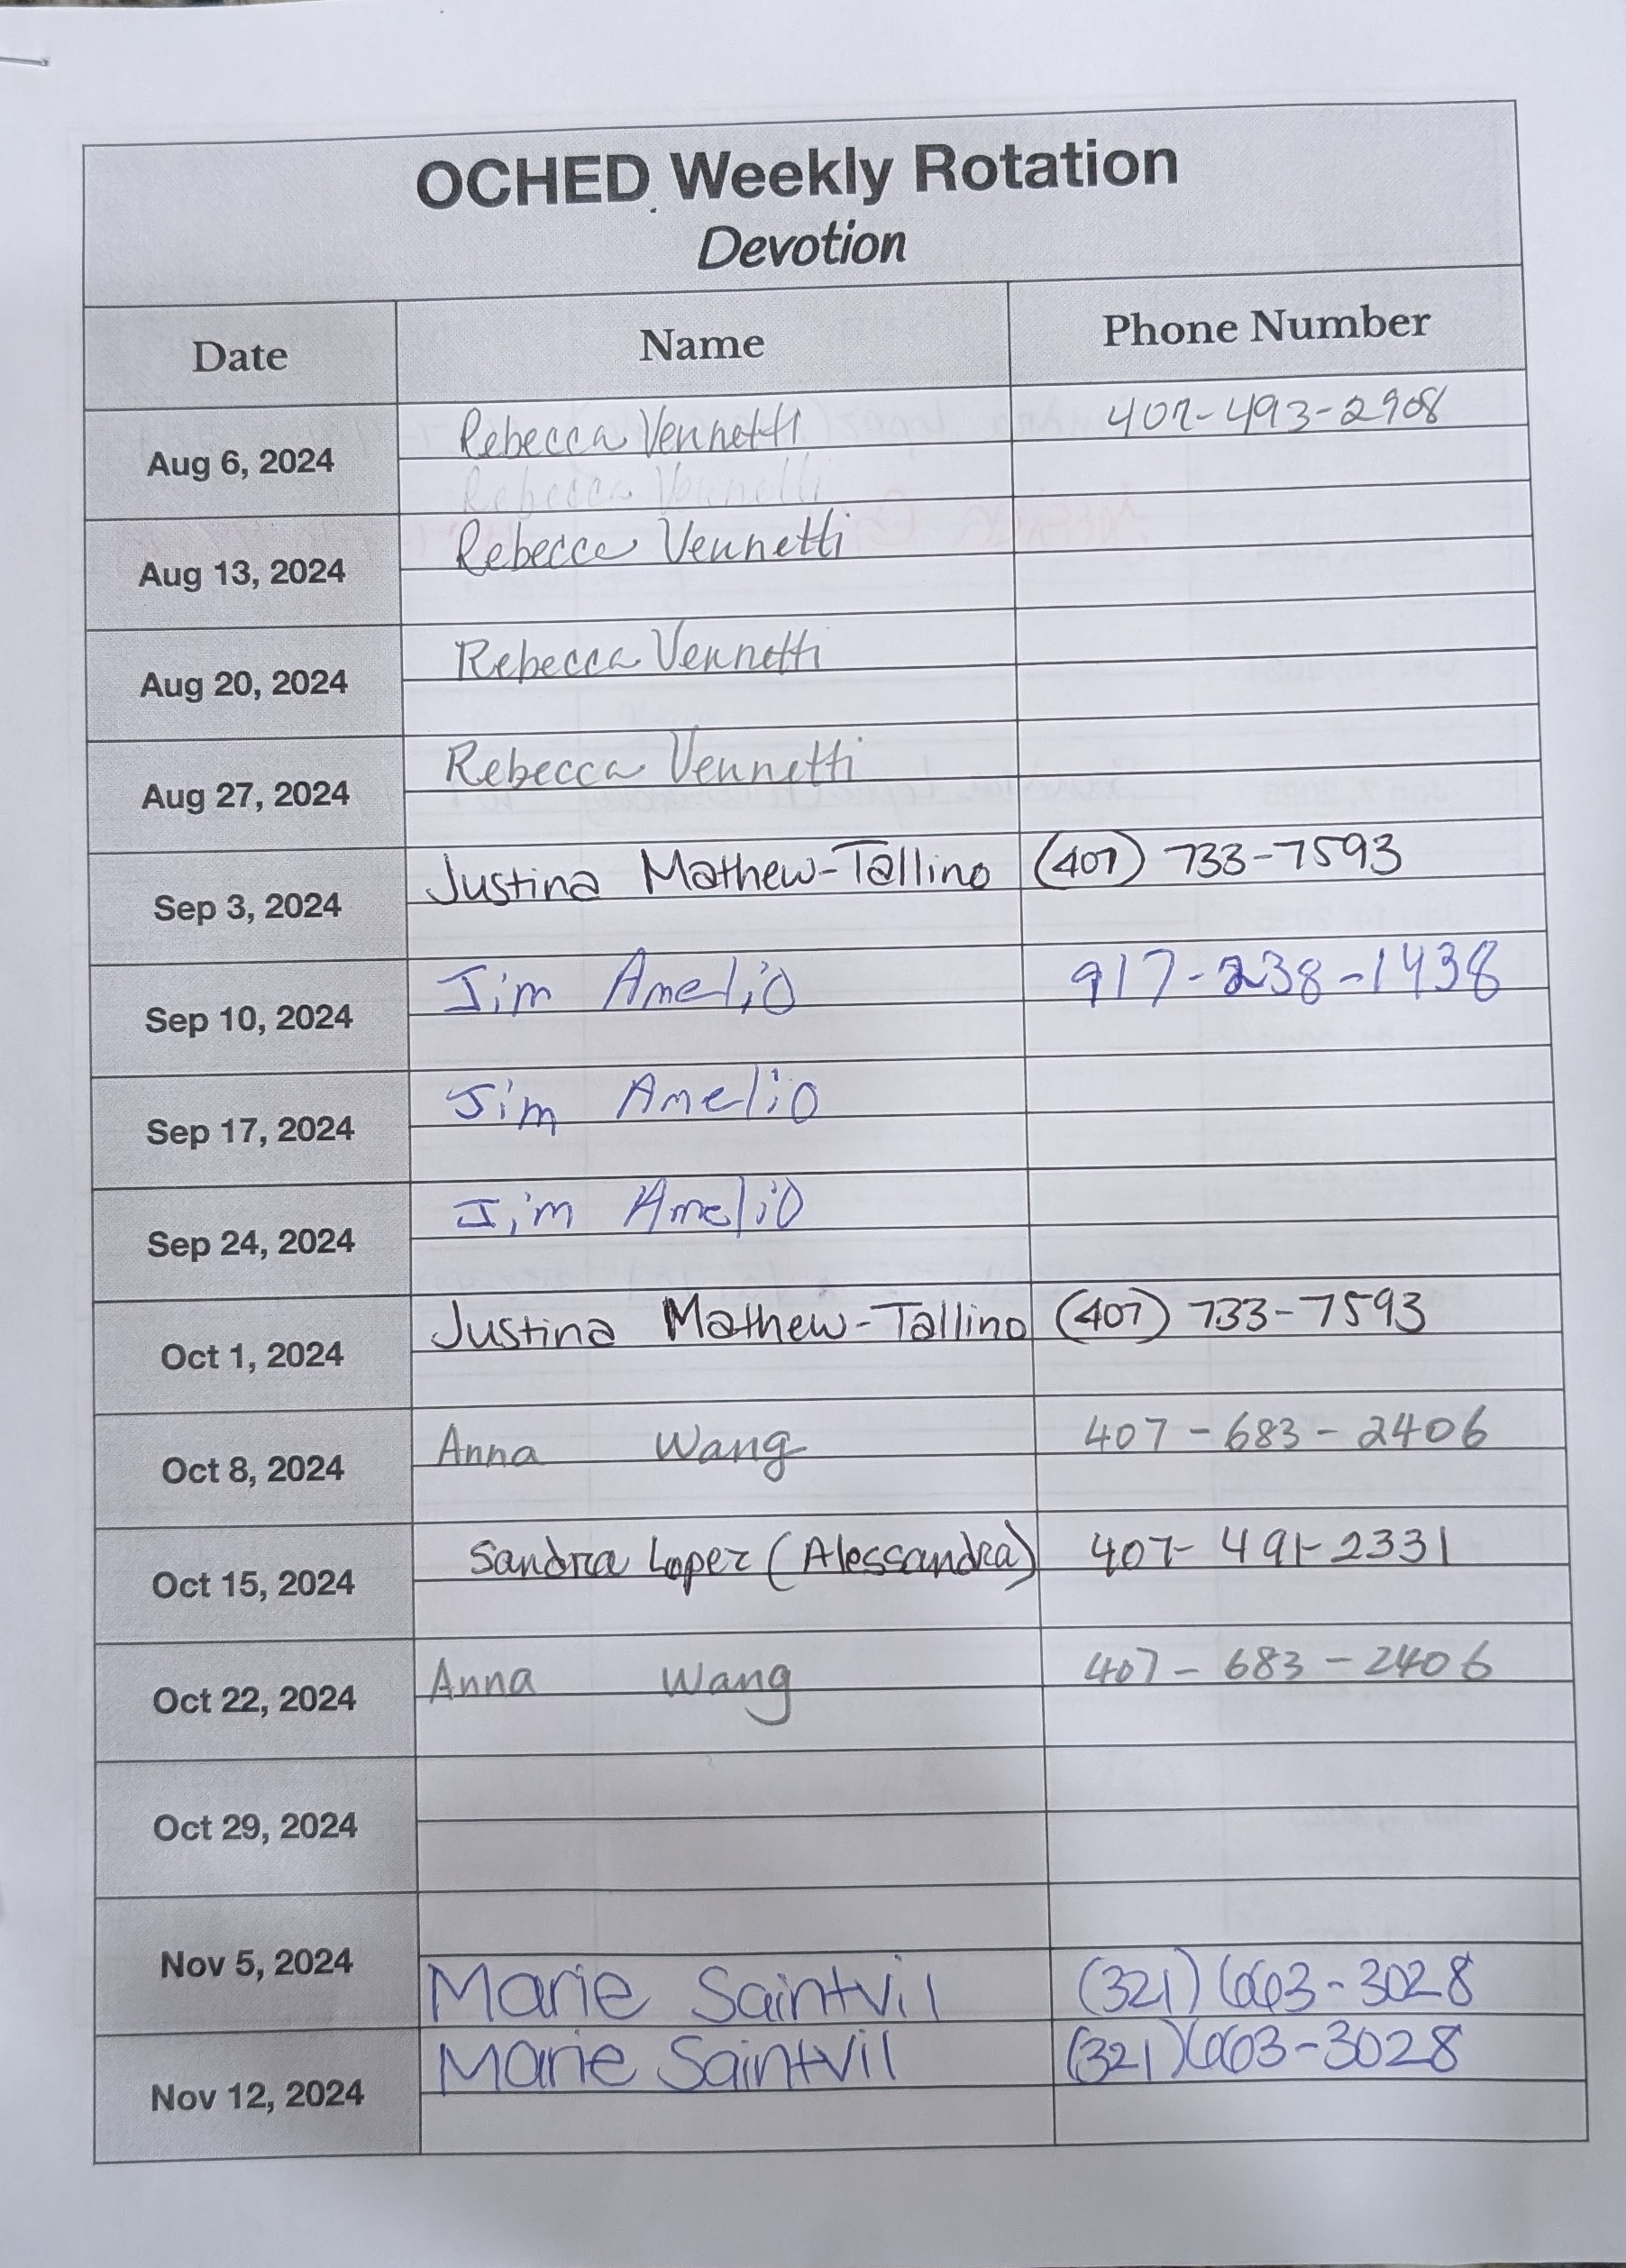 OCHED Weekly Rotation
Devotion
Date Name Phone Number
Aug 6, 2024 Rebecca Vennetti 407-493-2908
Rebecca Vennetti
Aug 13, 2024 Rebecca Vennetti
Aug 20, 2024 Rebecca Vennetti
Aug 27, 2024 Rebecca Vennetti
Sep 3, 2024 Justina Mathew-Tallino (407) 733-7593
Sep 10, 2024 Jim Amelio 917-238-1438
Sep 17, 2024 Jim Amelio
Sep 24, 2024 Jim Amelio
Oct 1, 2024 Justina Mathew-Tallino (407) 733-7593
Oct 8, 2024 Anna Wang 407-683-2406
Oct 15, 2024 Sandra Lopez (Alessandra) 407-491-2331
Oct 22, 2024 Anna Wang 407-683-2406
Oct 29, 2024
Nov 5, 2024 Marie Saintvil (321) 663-3028
Nov 12, 2024 Marie Saintvil (321) 663-3028